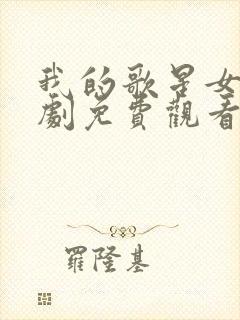 我的歌星女
劇免費觀看
羅隆基